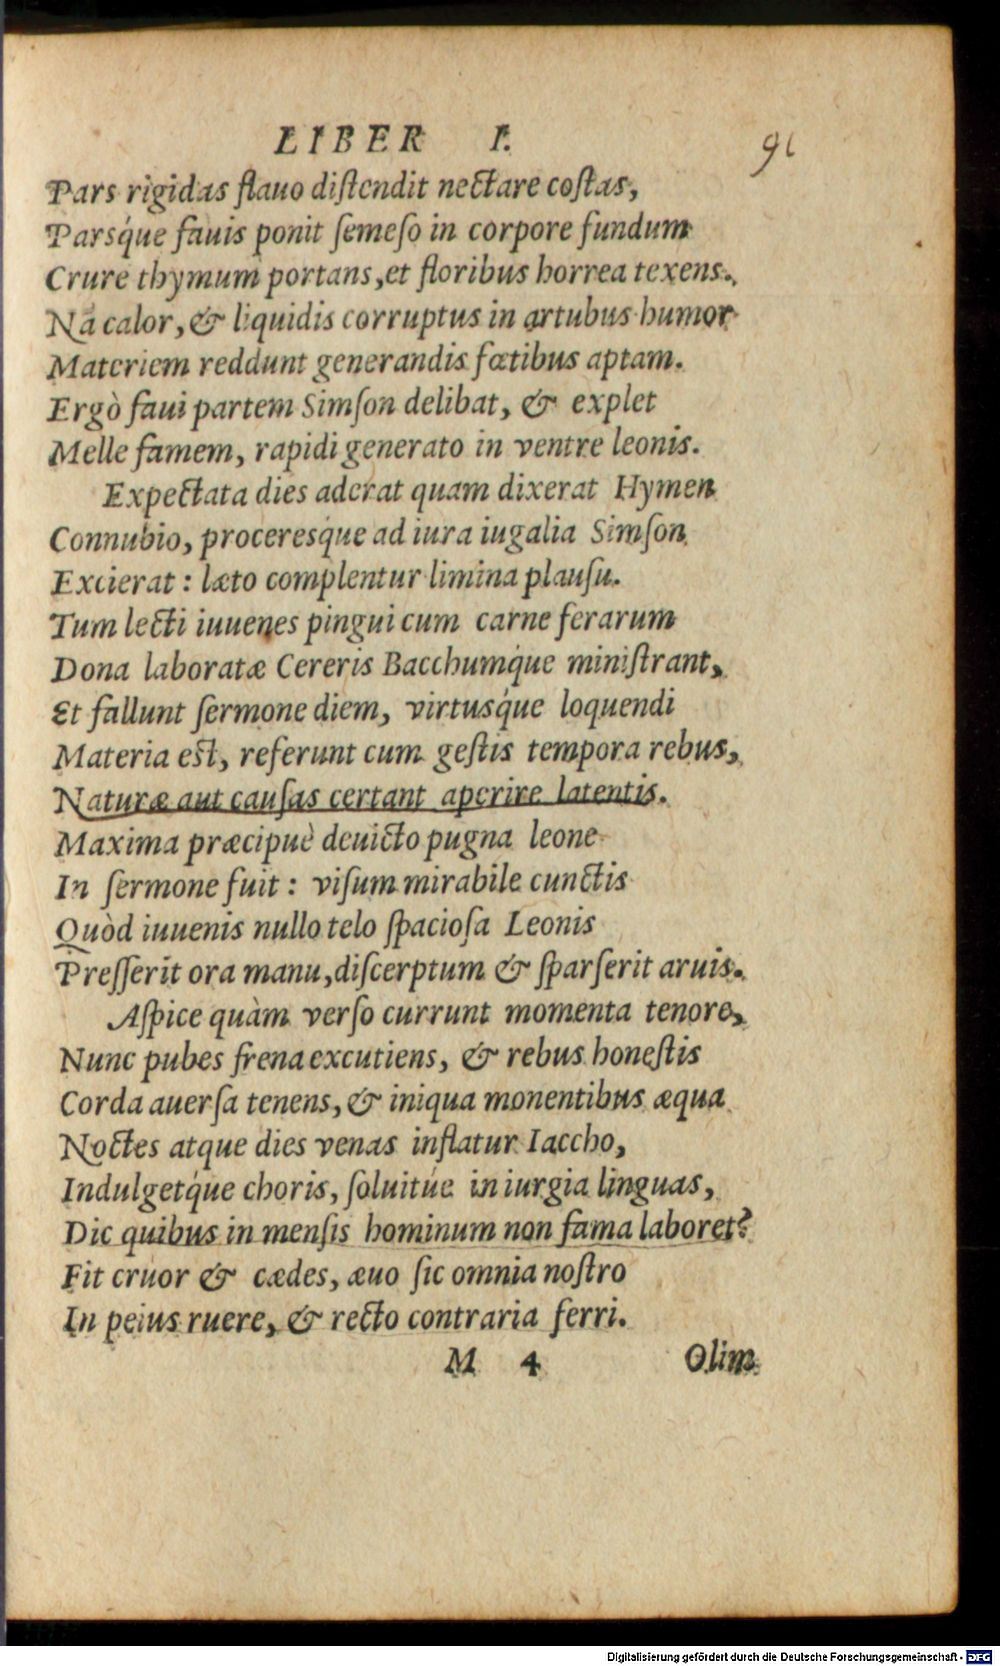 LIBER I.
91
Pars rigidas flauo diſtendit nectare coſtas,
Parsq́ue fauis ponit ſemeſo in corpore fundum
Crure thymum portans, et floribus horrea texens.
Nā calor, & liquidis corruptus in artubus humor
Materiem reddunt generandis fœtibus aptam.
Ergò faui partem Simſon delibat, & explet
Melle famem, rapidi generato in ventre leonis.
Expectata dies aderat quam dixerat Hymen
Connubio, proceresq́ue ad iura iugalia Simſon
Excierat : læto complentur limina plauſu.
Tum lecti iuuenes pingui cum carne ferarum
Dona laboratæ Cereris Bacchumq́ue miniſtrant,
Et fallunt ſermone diem, virtusq́ue loquendi
Materia eſt, referunt cum geſtis tempora rebus,
Naturæ aut cauſas certant aperire latentis.
Maxima præcipuè deuicto pugna leone
In ſermone fuit : viſum mirabile cunctis
Quòd iuuenis nullo telo ſpacioſa Leonis
Preſſerit ora manu, diſcerptum & ſparſerit aruis.
Aſpice quàm verſo currunt momenta tenore,
Nunc pubes frena excutiens, & rebus honeſtis
Corda auerſa tenens, & iniqua monentibus æqua
Noctes atque dies venas inflatur Iaccho,
Indulgetq́ue choris, ſoluitúe in iurgia linguas,
Dic quibus in menſis hominum non fama laboret?
Fit cruor & cædes, æuo ſic omnia noſtro
In peius ruere, & recto contraria ferri.
M 4 Olim
Digitalisierung gefördert durch die Deutsche Forschungsgemeinschaft - DFG